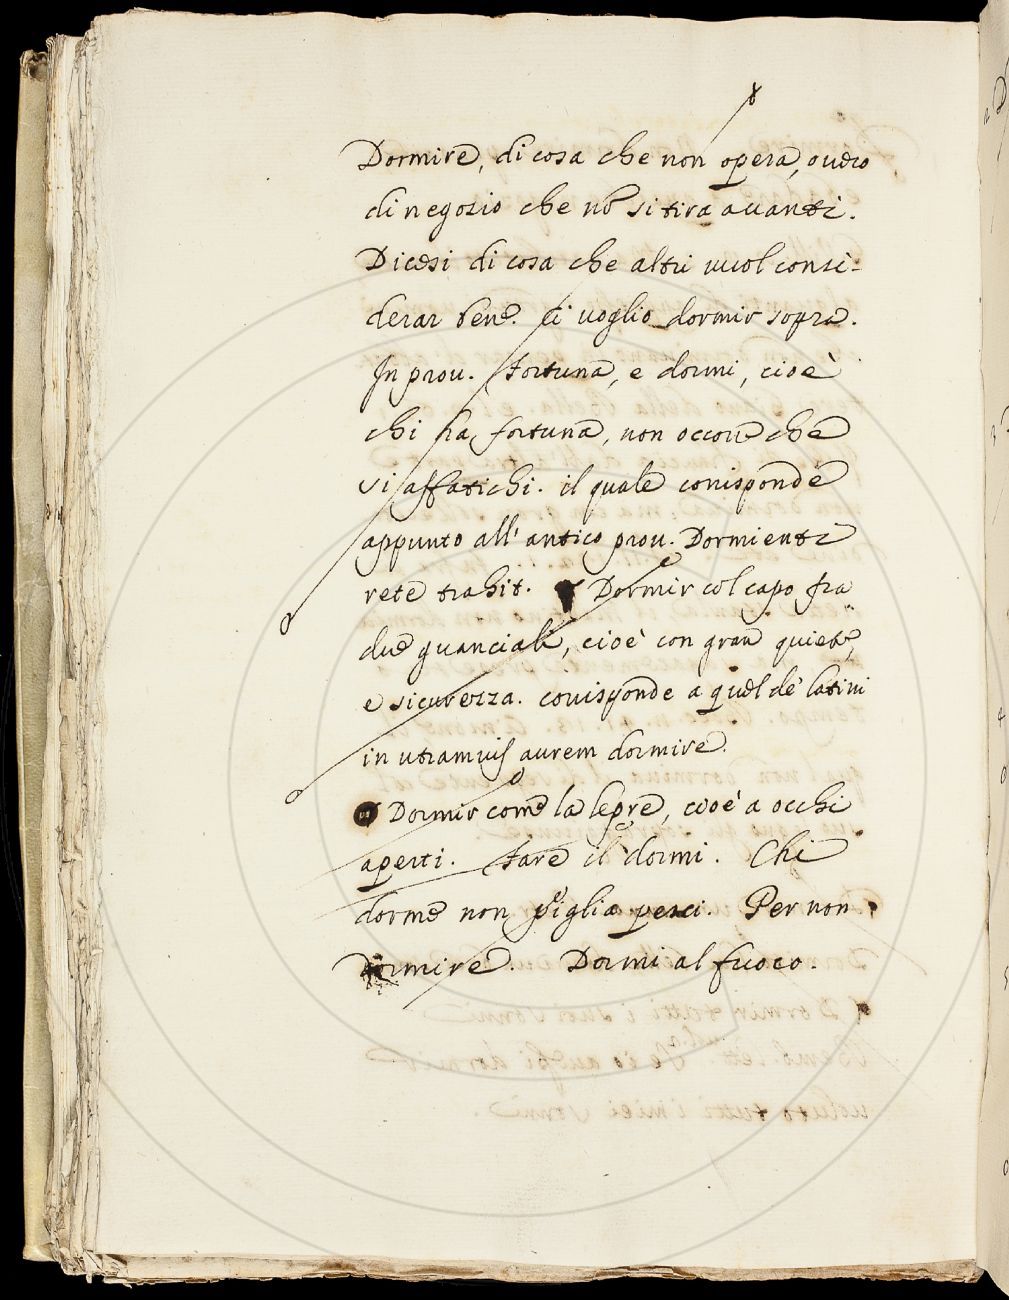 Dormire, di cosa che non opera, ouero
di negozio che nõ si tira auanti.
Dicesi di cosa che altri uuol consi-
derar bene. ci uoglio dormir sopra.
In prou. fortuna, e dormi, cioè
chi ha fortuna, non occorre che
si affatichi. il quale corrisponde
appunto all' antico prou. Dormienti
rete trahit. Dormir col capo fra
due guanciali, cioè con gran quiete,
e sicurezza. corrisponde a quel de' latini
in utramuis aurem dormire.
Dormir come la lepre, cioè a occhi
aperti. fare il dormi. Chi
dorme non piglia pesci. Per non
dormire. Dormi al fuoco.